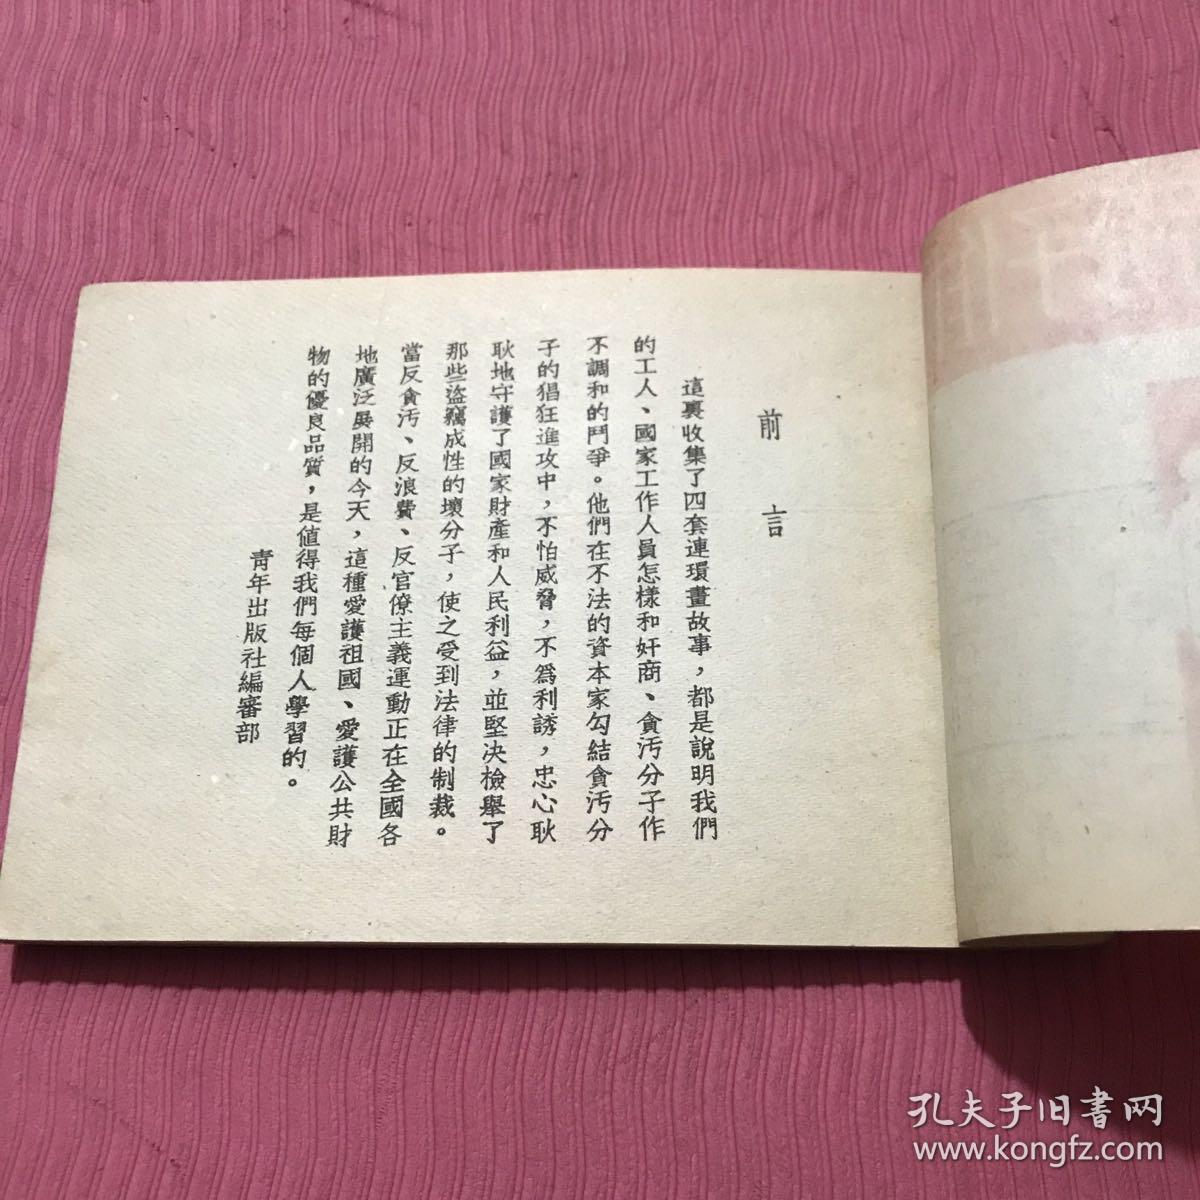 前言
這裏收集了四套連環畫故事，都是說明我們
的工人、國家工作人員怎樣和奸商、貪汚分子作
不調和的鬥爭。他們在不法的資本家勾結貪汚分
子的猖狂進攻中，不怕威脅，不爲利誘，忠心耿
耿地守護了國家財產和人民利益，並堅決檢舉了
那些盜竊成性的壞分子，使之受到法律的制裁。
當反貪汚、反浪費、反官僚主義運動正在全國各
地廣泛展開的今天，這種愛護祖國、愛護公共財
物的優良品質，是値得我們每個人學習的。
靑年出版社編審部
孔夫子旧書网
www.kongfz.com